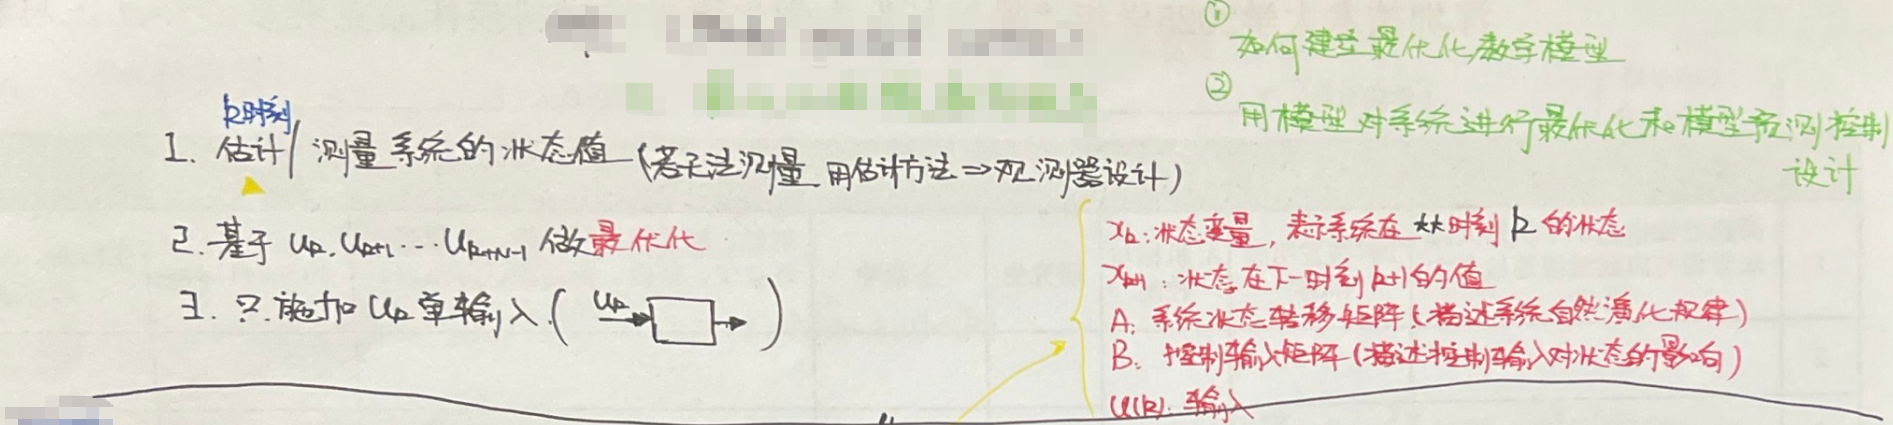 ①
如何建立最优化数学模型
②
用模型对系统进行最优化和模型预测控制
设计
k时刻
1. 估计/测量系统的状态值(若无法测量 用估计方法⇒观测器设计)
2. 基于 uk, uk+1 ... uk+N-1 做最优化
3. 只施加 uk 单输入 ( uk )
xk: 状态变量, 表示系统在 时刻 k 的状态
xk+1: 状态在下一时刻 k+1 的值
A: 系统状态转移矩阵 (描述系统自然演化规律)
B: 控制输入矩阵 (描述控制输入对状态的影响)
u(k): 输入